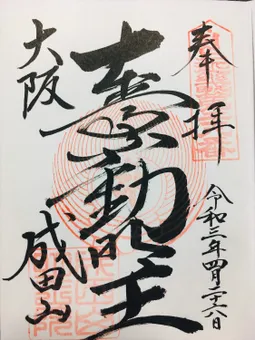 奉拝
令和三年四月二十六日
本尊不動明王
大阪
成田山